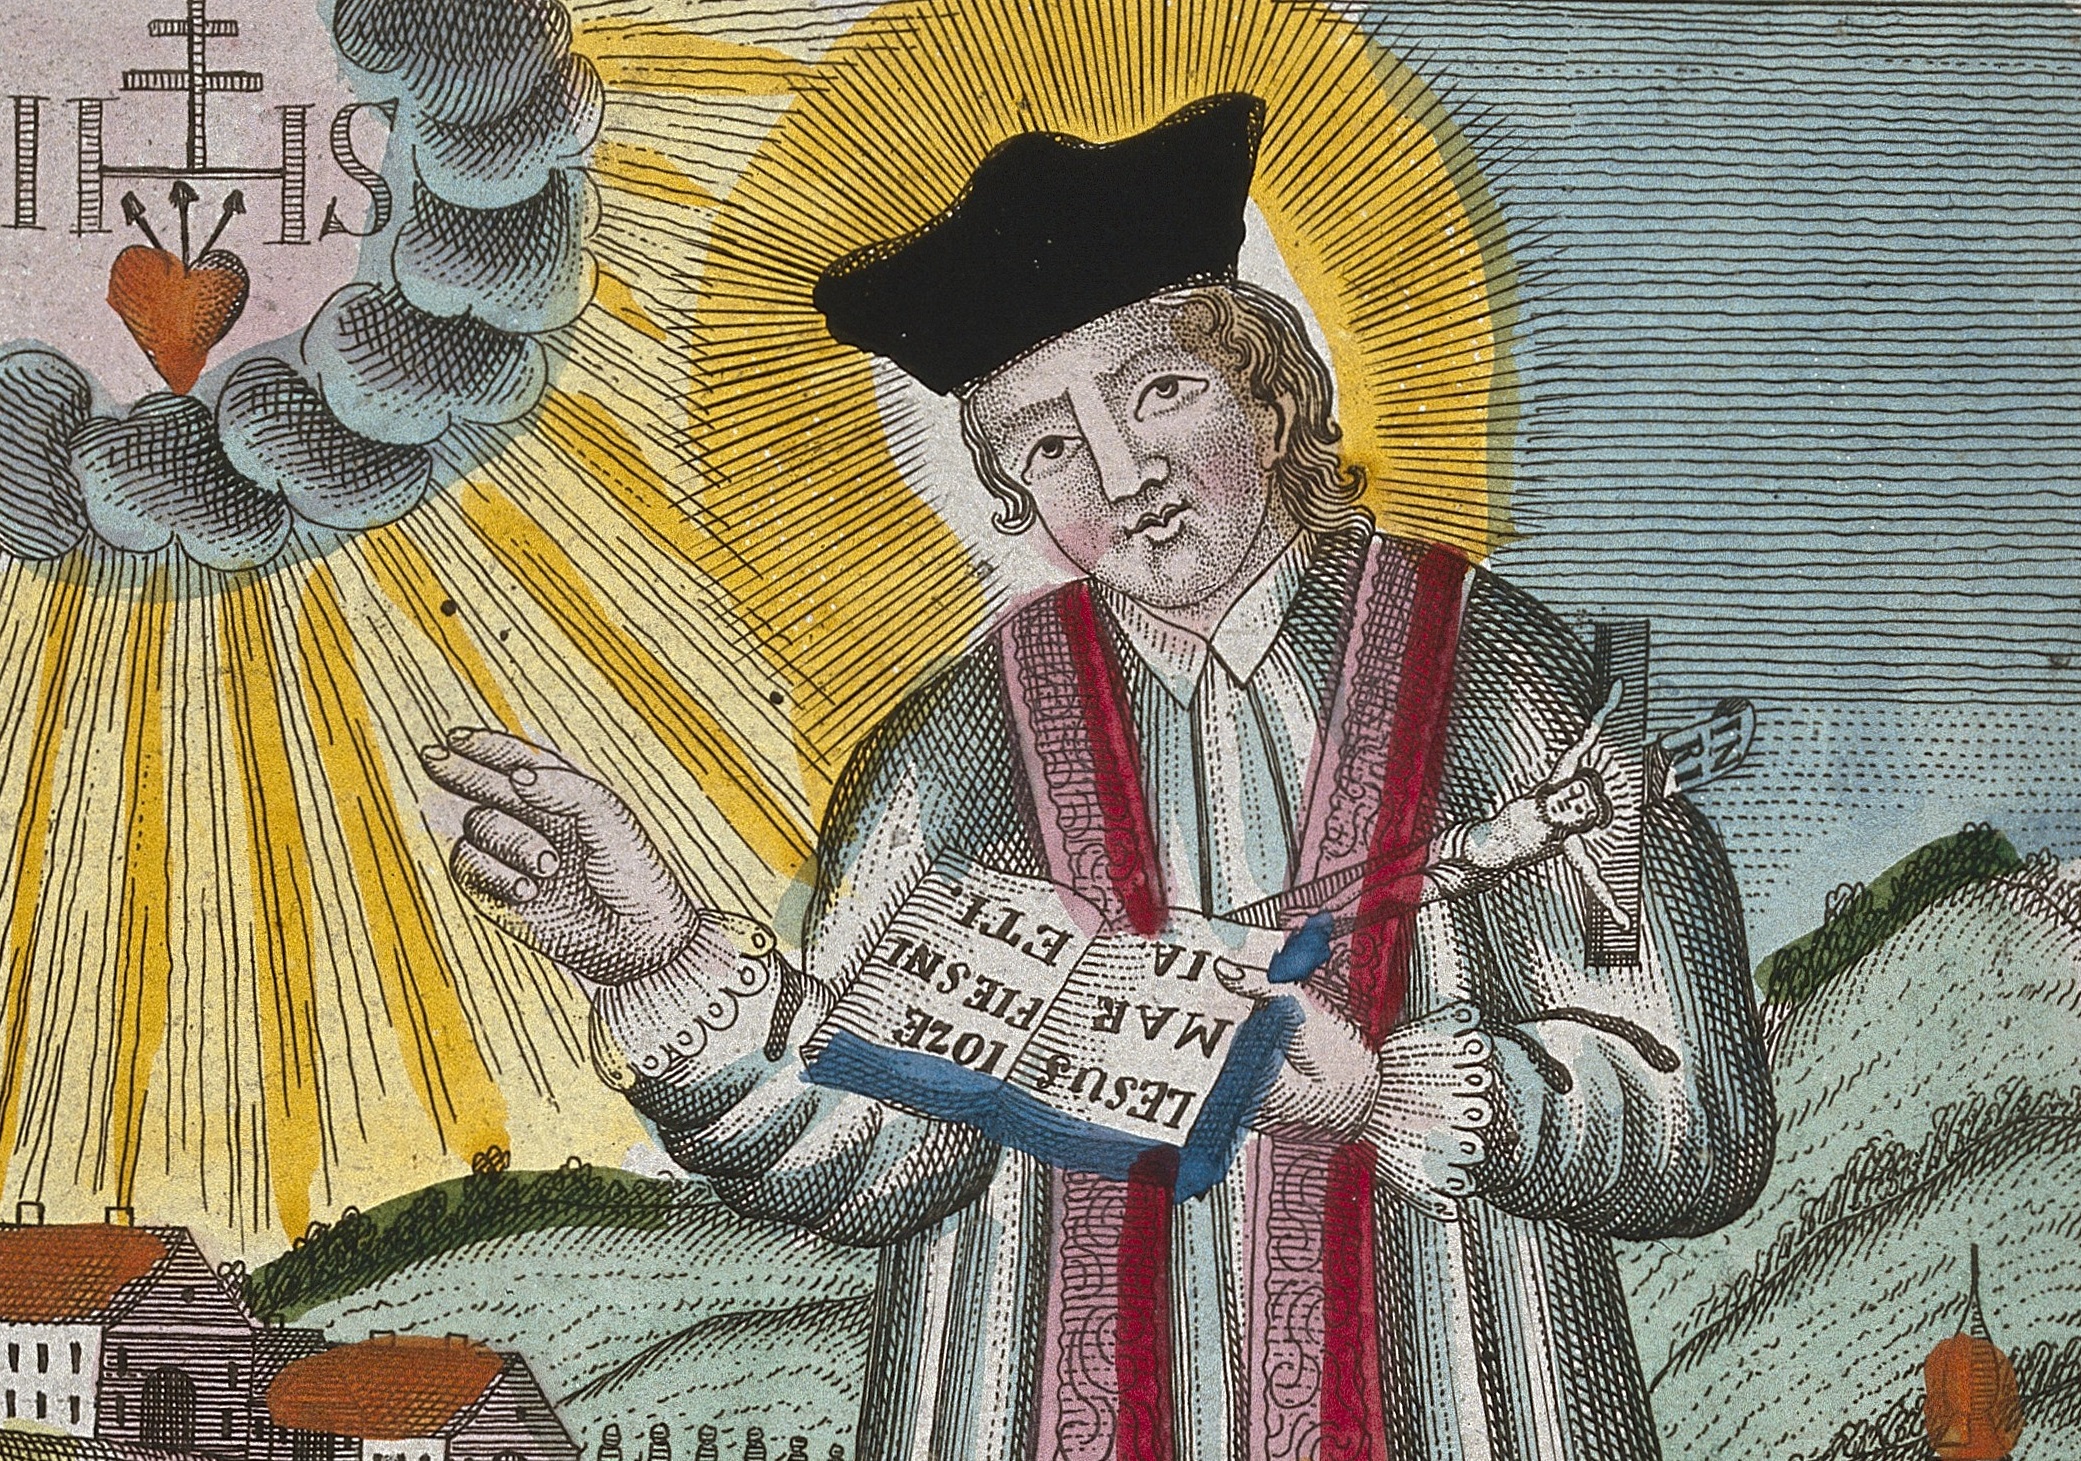 IHS
INRI
IESUS
MAR
IA
IOZE
FIESNI
ET I.